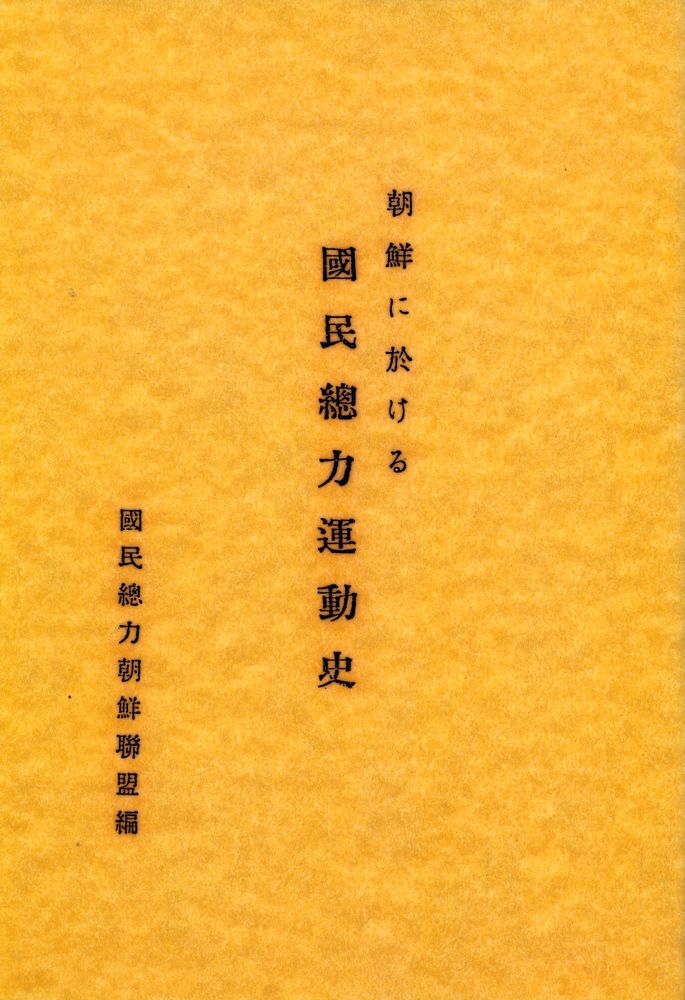 朝鮮に於ける
國民總力運動史
國民總力朝鮮聯盟編